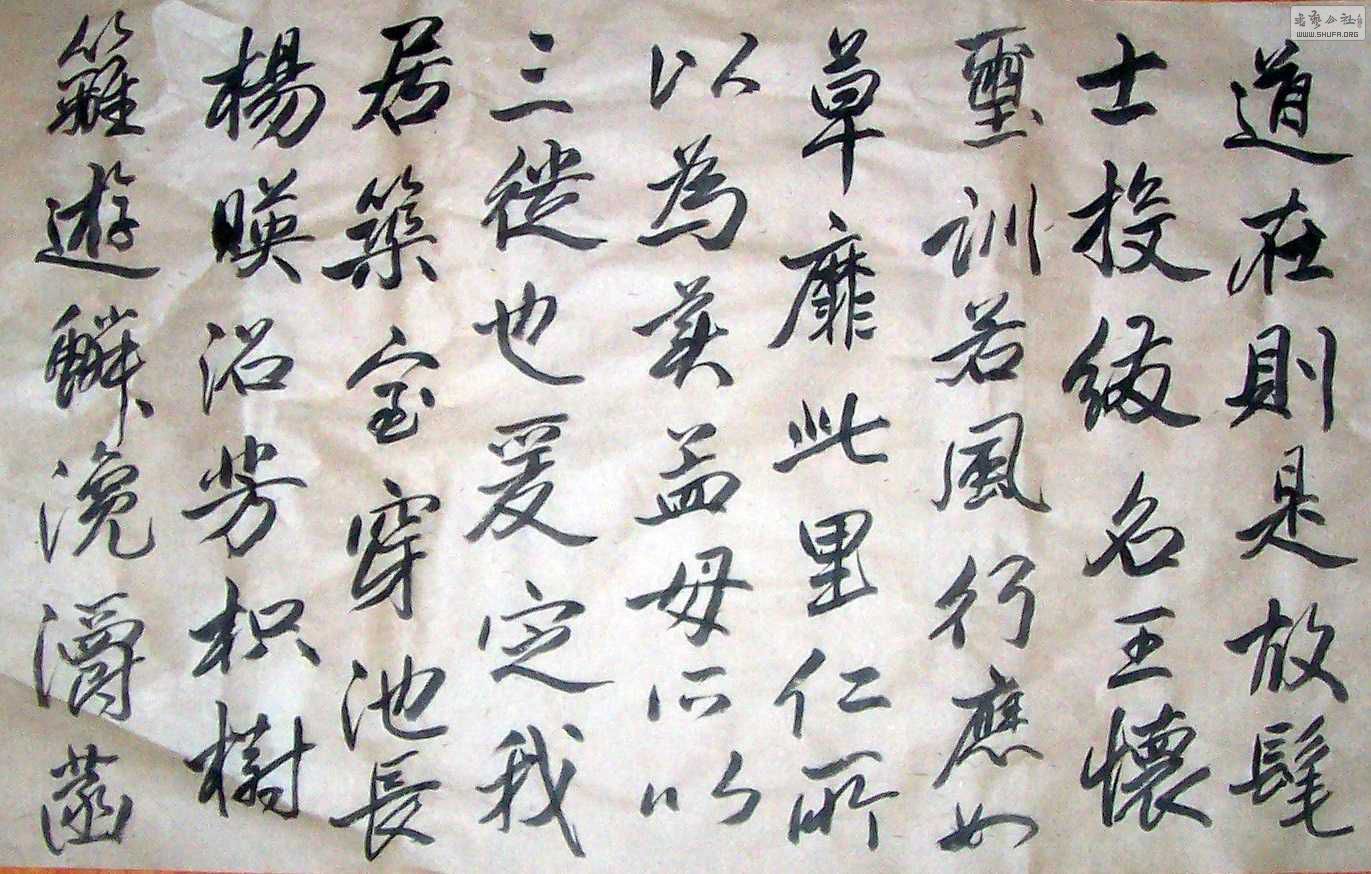 道在則是故髦
士投紱名王懷
璽訓若風行應如
草靡此里仁所
以為美孟母所以
三徙也爰定我
居築室穿池長
楊暎沼芳枳樹
籬遊鱗瀺灂菡
WWW.SHUFA.ORG